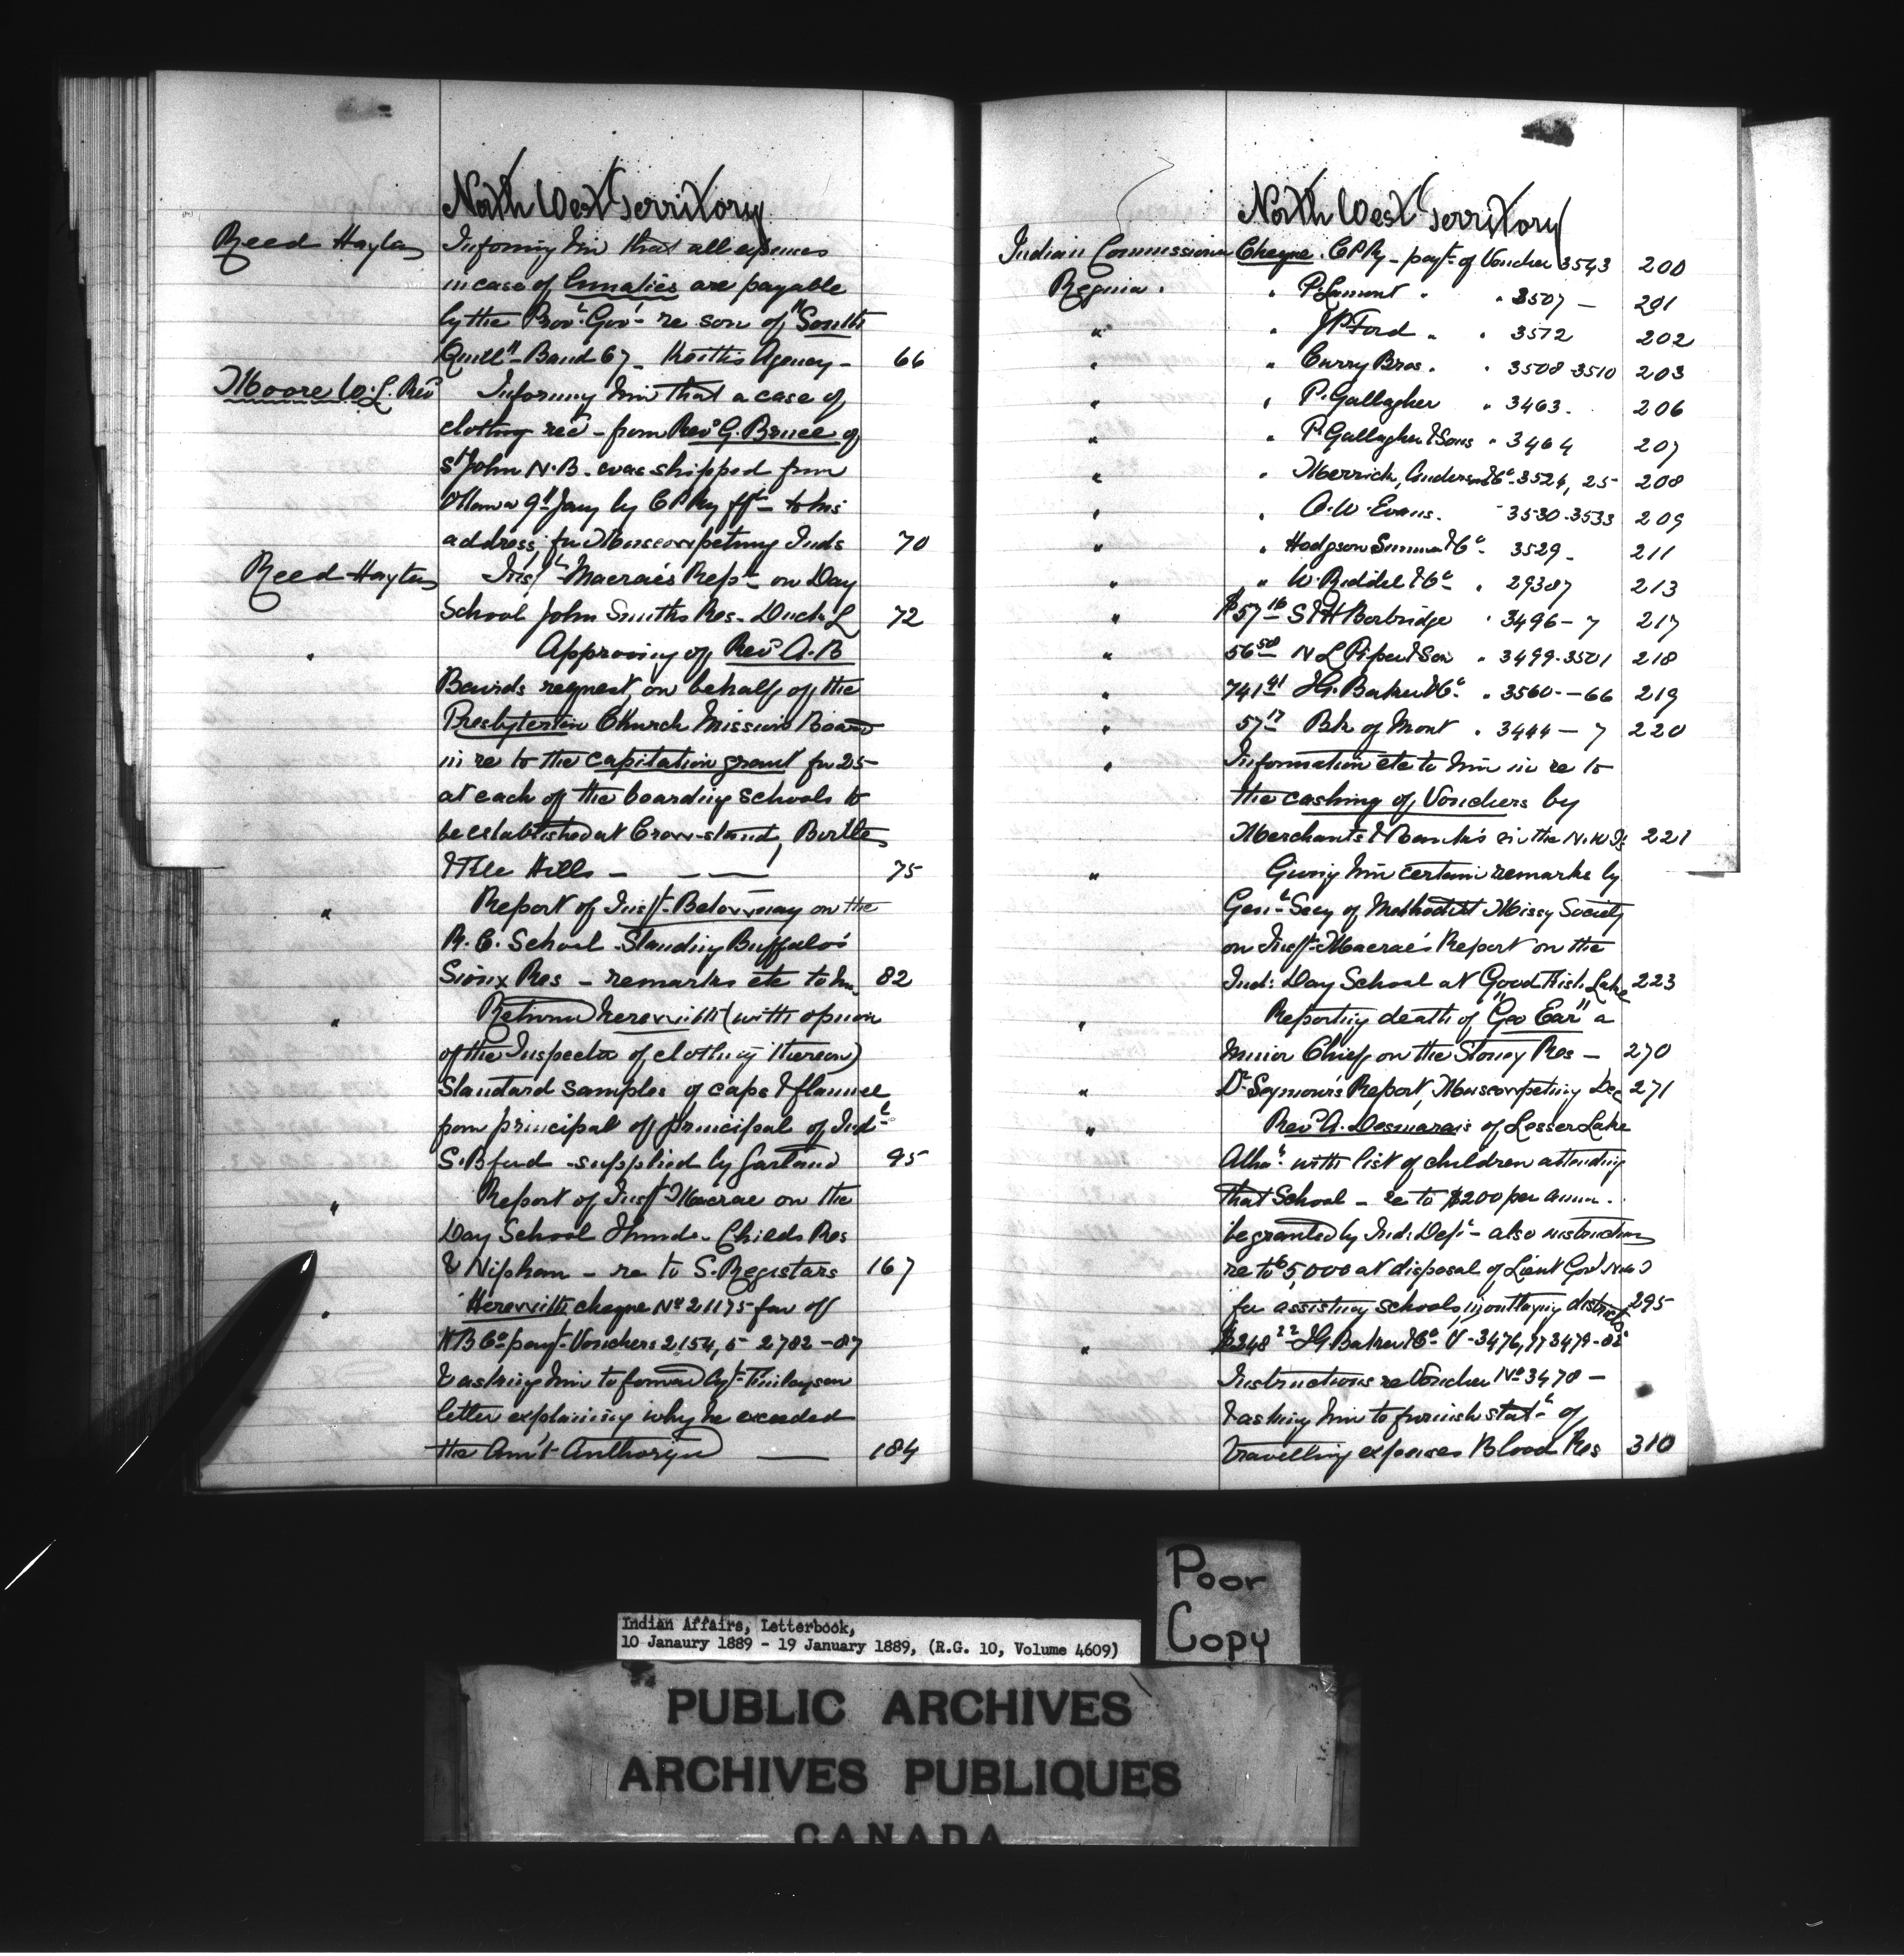 North West Territory
Reed Hayter Informing him that all expenses
in case of Lunatics are payable
by the Prov. Gov't re son of "South
Quill" Band 67 - Keith's Agency - 66
Moore W. L. Revd Informing him that a case of
clothing rec'd - from Revd G. Bruce of
St John N.B. was shipped from
Ottawa 9th Jany by CPRy ffh - to his
address, for Muscowpetung Inds 70
Reed Hayter Insp. Macrae's Rept on Day
School John Smith's Res. Duck L 72
" Approving of Revd A. B
Bairds request, on behalf of the
Presbyterian Church Mission Board
in re to the capitation grant for 25
at each of the boarding schools to
be established at Crow-stand, Birtle
& File Hills - - - 75
" Report of Inspt. Betournay on the
R. C. School - Standing Buffalo's
Sioux Res - remarks etc to him 82
" Return herewith (with opinion
of the Inspector of clothing thereon)
Standard samples of caps & flannel
from principal off principal of Indl
S. Bford - supplied by Garland 95
" Report of Inspt Macrae on the
Day School Thund. Childs Res
& Nipham - re to S. Registars 167
" Herewith cheque No 21175 fav of
HB Co payt Vouchers 2154, 5 - 2782 - 87
& asking him to forward Agt Finlayson
letter explaining why he exceeded
the Am't Authorized — 184
North West Territory
Indian Commissioner Cheque. CPRy - payt of Voucher 3543 200
Regina. " P. Lamont " " 3507 - 201
" " J P Ford " " 3572 202
" " Curry Bros. " 3508-3510 203
" " P. Gallagher " 3463. 206
" " P. Gallagher & Sons " 3464 207
" " Merrick, Anderson & Co 3524, 25 - 208
" " A. W. Evans. " 3530-3533 209
" " Hodgson Sumner & Co 3529 - 211
" " W. Riddel & Co " 29387 213
" $57.16 S & H Borbridge " 3496 - 7 217
" 56.50 N L Piper & Son " 3499-3501 218
" 741.41 I G. Baker & Co " 3560 - 66 219
" 57.17 Bk of Mont " 3444 - 7 220
" Information etc to him in re to
the cashing of Vouchers by
Merchants & Bank's in the N.W.Ts 221
" Giving him certain remarks by
Genl Secy of Methodist Missy Society
on Inspt Macrae's Report on the
Ind: Day School at Good Fish Lake 223
" Reporting death of "Geo Ear" a
minor Chief on the Stoney Res - 270
" Dr Seymour's Report, Muscowpetung Dec 271
" Revd A. Desmarais of Lesser Lake
Atha with list of children attending
that School - re to $200 per annu.
be granted by Ind: Dept - also instructions
re to $5,000 at disposal of Lieut Gov N W T
for assisting schools in outlaying districts 295
" $248.22 I G Baker & Co V - 3476, 77 3479 - 82
Instructions re Voucher No 3478 -
& asking him to furnish statt of
travelling expenses Blood Res 310
Poor
Copy
Indian Affairs, Letterbook,
10 Janaury 1889 - 19 January 1889, (R.G. 10, Volume 4609)
PUBLIC ARCHIVES
ARCHIVES PUBLIQUES
CANADA